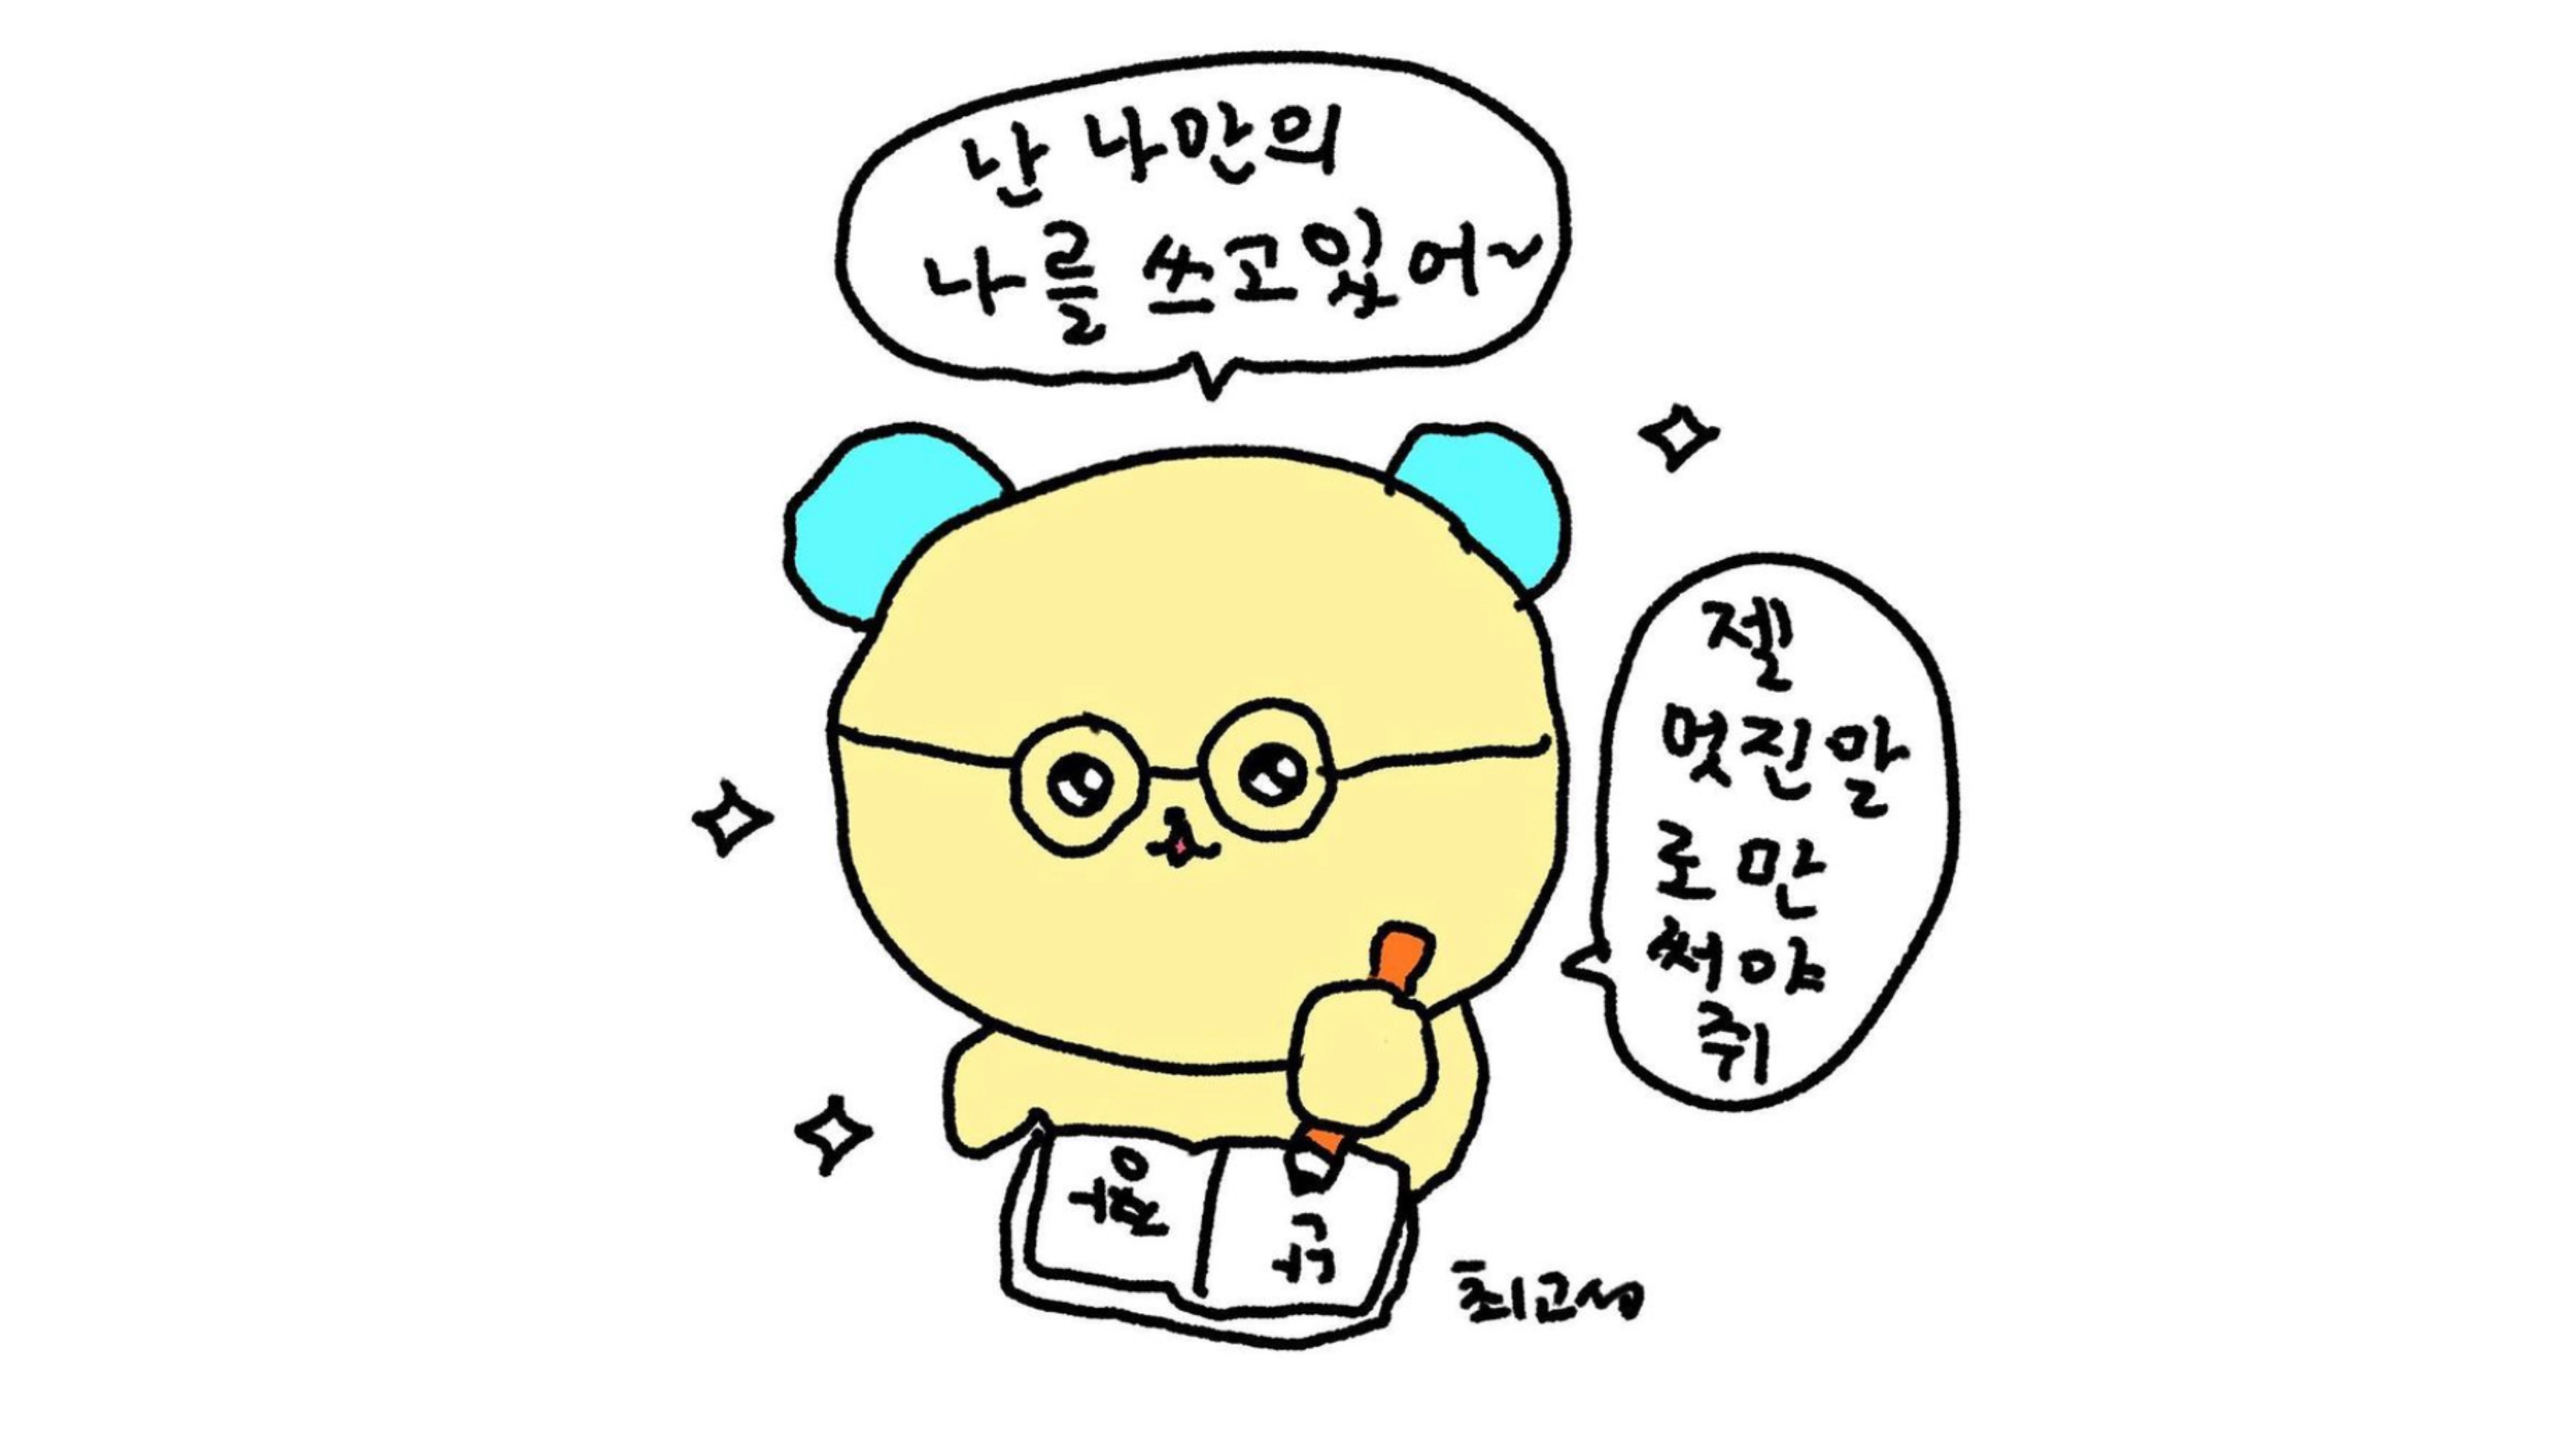 난 나만의
나를 쓰고있어~
젤
멋진말
로만
써야
쥐
최고심